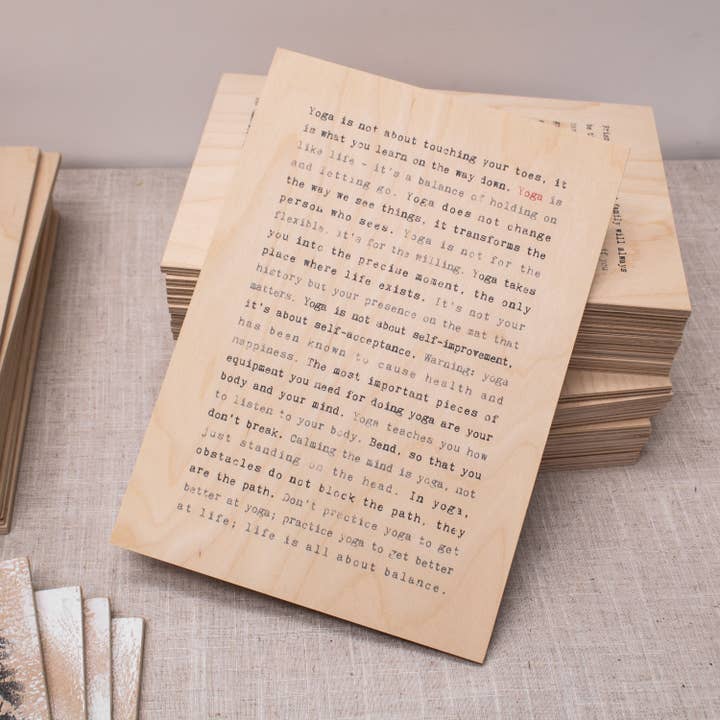 Yoga is not about touching your toes, it
is what you learn on the way down. Yoga is
like life - it's a balance of holding on
and letting go. Yoga does not change
the way we see things, it transforms the
person who sees. Yoga is not for the
flexible, it's for the willing. Yoga takes
you into the precise moment, the only
place where life exists. It's not your
history but your presence on the mat that
matters. Yoga is not about self-improvement,
it's about self-acceptance. Warning: yoga
has been known to cause health and
happiness. The most important pieces of
equipment you need for doing yoga are your
body and your mind. Yoga teaches you how
to listen to your body. Bend, so that you
don't break. Calming the mind is yoga, not
just standing on the head. In yoga,
obstacles do not block the path, they
are the path. Don't practice yoga to get
better at yoga; practice yoga to get better
at life; life is all about balance.
family will always
if you